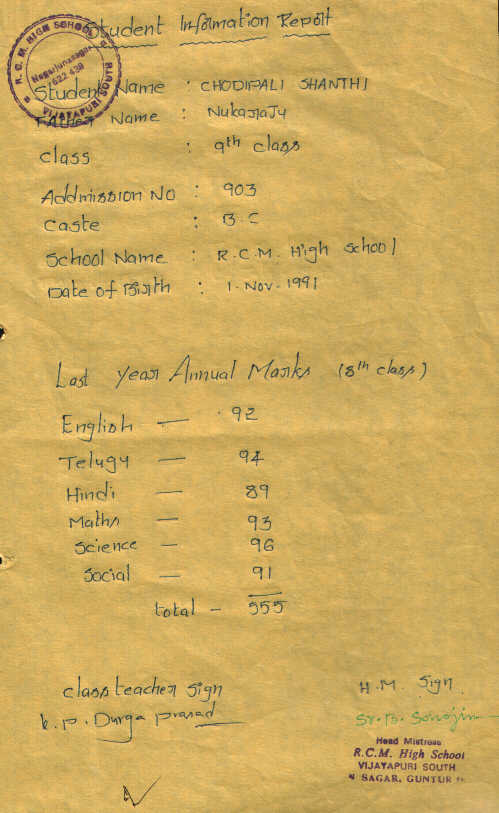 Student Information Report
R.C.M. HIGH SCHOOL
Nagarjunasagar
522 439
VIJAYAPURI SOUTH
Student Name : CHODIPALI SHANTHI
Father Name : Nukaraju
class : 9th class
Addmission No : 903
Caste : B.C
School Name : R.C.M. High School
Date of Birth : 1. Nov. 1991
Last year Annual Marks (8th class)
English — 92
Telugu — 94
Hindi — 89
Maths — 93
Science — 96
Social — 91
total - 555
class teacher sign
H.M. Sign
k.p. Durga prasad
Sr. B. Sarojini
Head Mistress
R.C.M. High School
VIJAYAPURI SOUTH
N SAGAR, GUNTUR